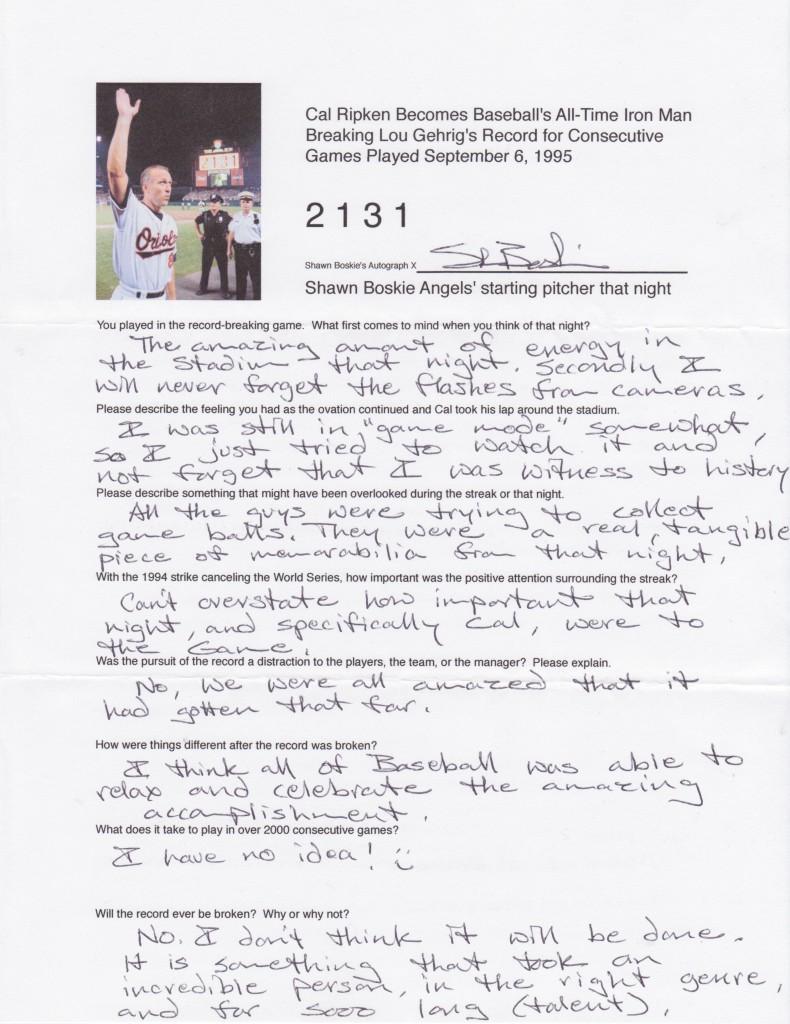 Cal Ripken Becomes Baseball's All-Time Iron Man
Breaking Lou Gehrig's Record for Consecutive
Games Played September 6, 1995
2131
Orioles
2 1 3 1
Shawn Boskie's Autograph X
Shawn Boskie Angels' starting pitcher that night
You played in the record-breaking game. What first comes to mind when you think of that night?
The amazing amount of energy in
the Stadium that night. Secondly I
will never forget the flashes from cameras.
Please describe the feeling you had as the ovation continued and Cal took his lap around the stadium.
I was still in "game mode" somewhat,
so I just tried to watch it and
not forget that I was witness to history
Please describe something that might have been overlooked during the streak or that night.
All the guys were trying to collect
game balls. They were a real, tangible
piece of memorabilia from that night.
With the 1994 strike canceling the World Series, how important was the positive attention surrounding the streak?
Can't overstate how important that
night, and specifically Cal, were to
the Game.
Was the pursuit of the record a distraction to the players, the team, or the manager? Please explain.
No, we were all amazed that it
had gotten that far.
How were things different after the record was broken?
I think all of Baseball was able to
relax and celebrate the amazing
accomplishment.
What does it take to play in over 2000 consecutive games?
I have no idea! :)
Will the record ever be broken? Why or why not?
No. I don't think it will be done.
It is something that took an
incredible person, in the right genre,
and for sooo long (talent).